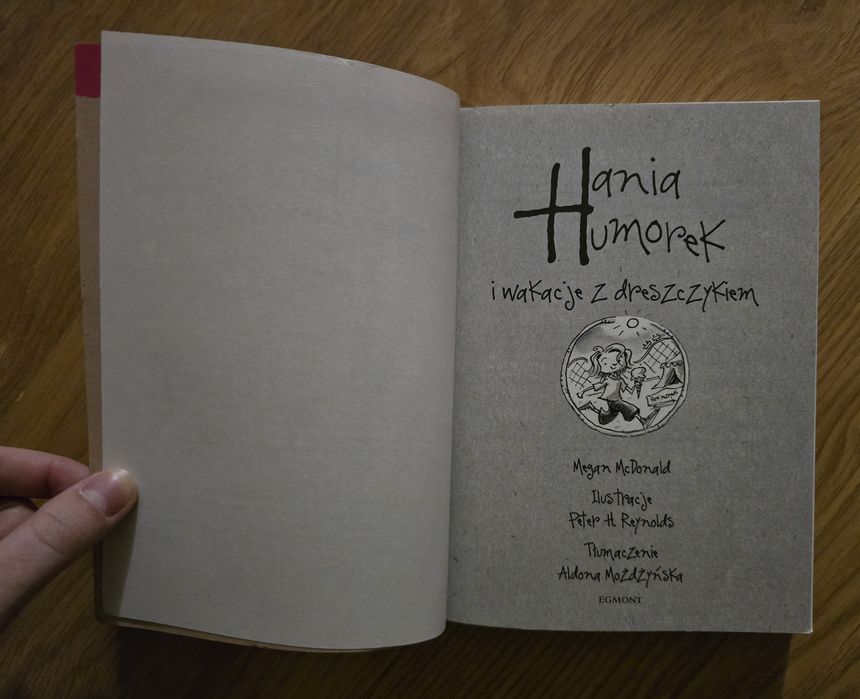 Hania
Humorek
i wakacje z dreszczykiem
Megan McDonald
Ilustracje
Peter H. Reynolds
Tłumaczenie
Aldona Możdżyńska
EGMONT